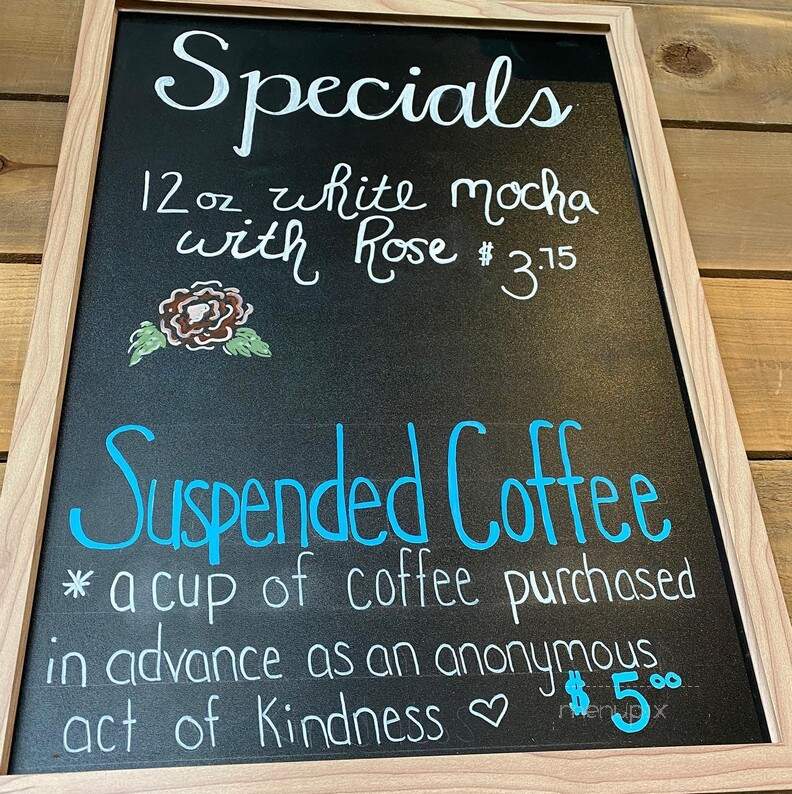 Specials
12 oz white mocha
with Rose $3.75
Suspended Coffee
* a cup of coffee purchased
in advance as an anonymous
act of Kindness ♡ $5.00
menupix